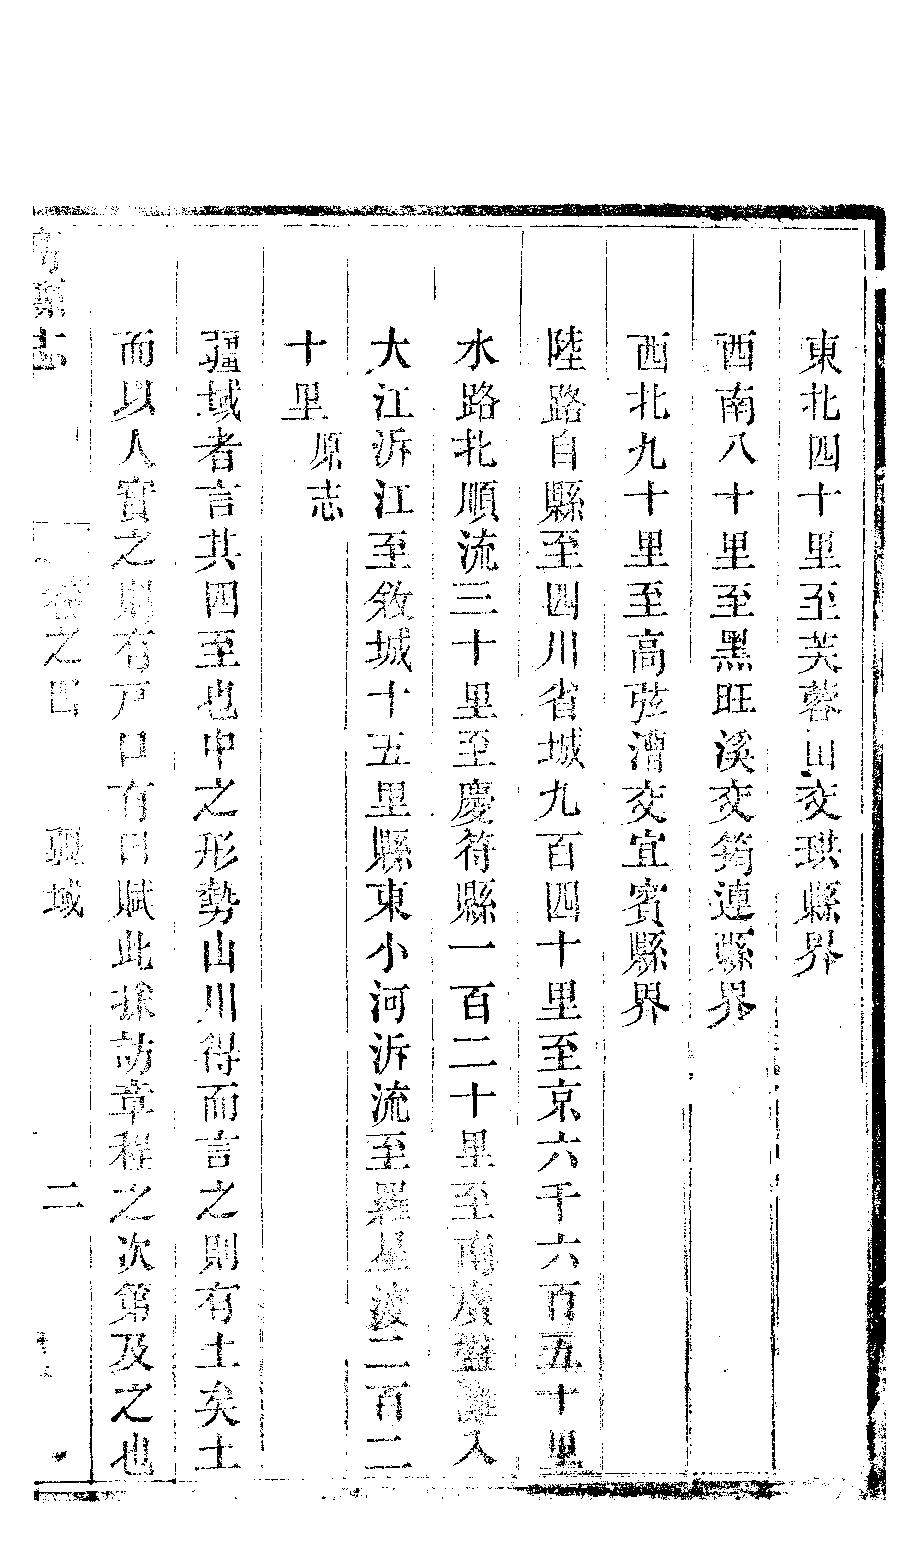 東北四十里至芙蓉山交珙縣界
西南八十里至黑旺溪交筠連縣界
西北九十里至高弦漕交宜賓縣界
陸路自縣至四川省城九百四十里至京六千六百五十里
水路北順流三十里至慶符縣一百二十里至南廣鹽灘入
大江泝江至敘城十五里縣東小河泝流至羅星渡二百二
十里原志
疆域者言其四至也中之形勢山川得而言之則有土矣土
而以人實之則有戸口有田賦此採訪章程之次第及之也
縣志 卷之四 疆域 二